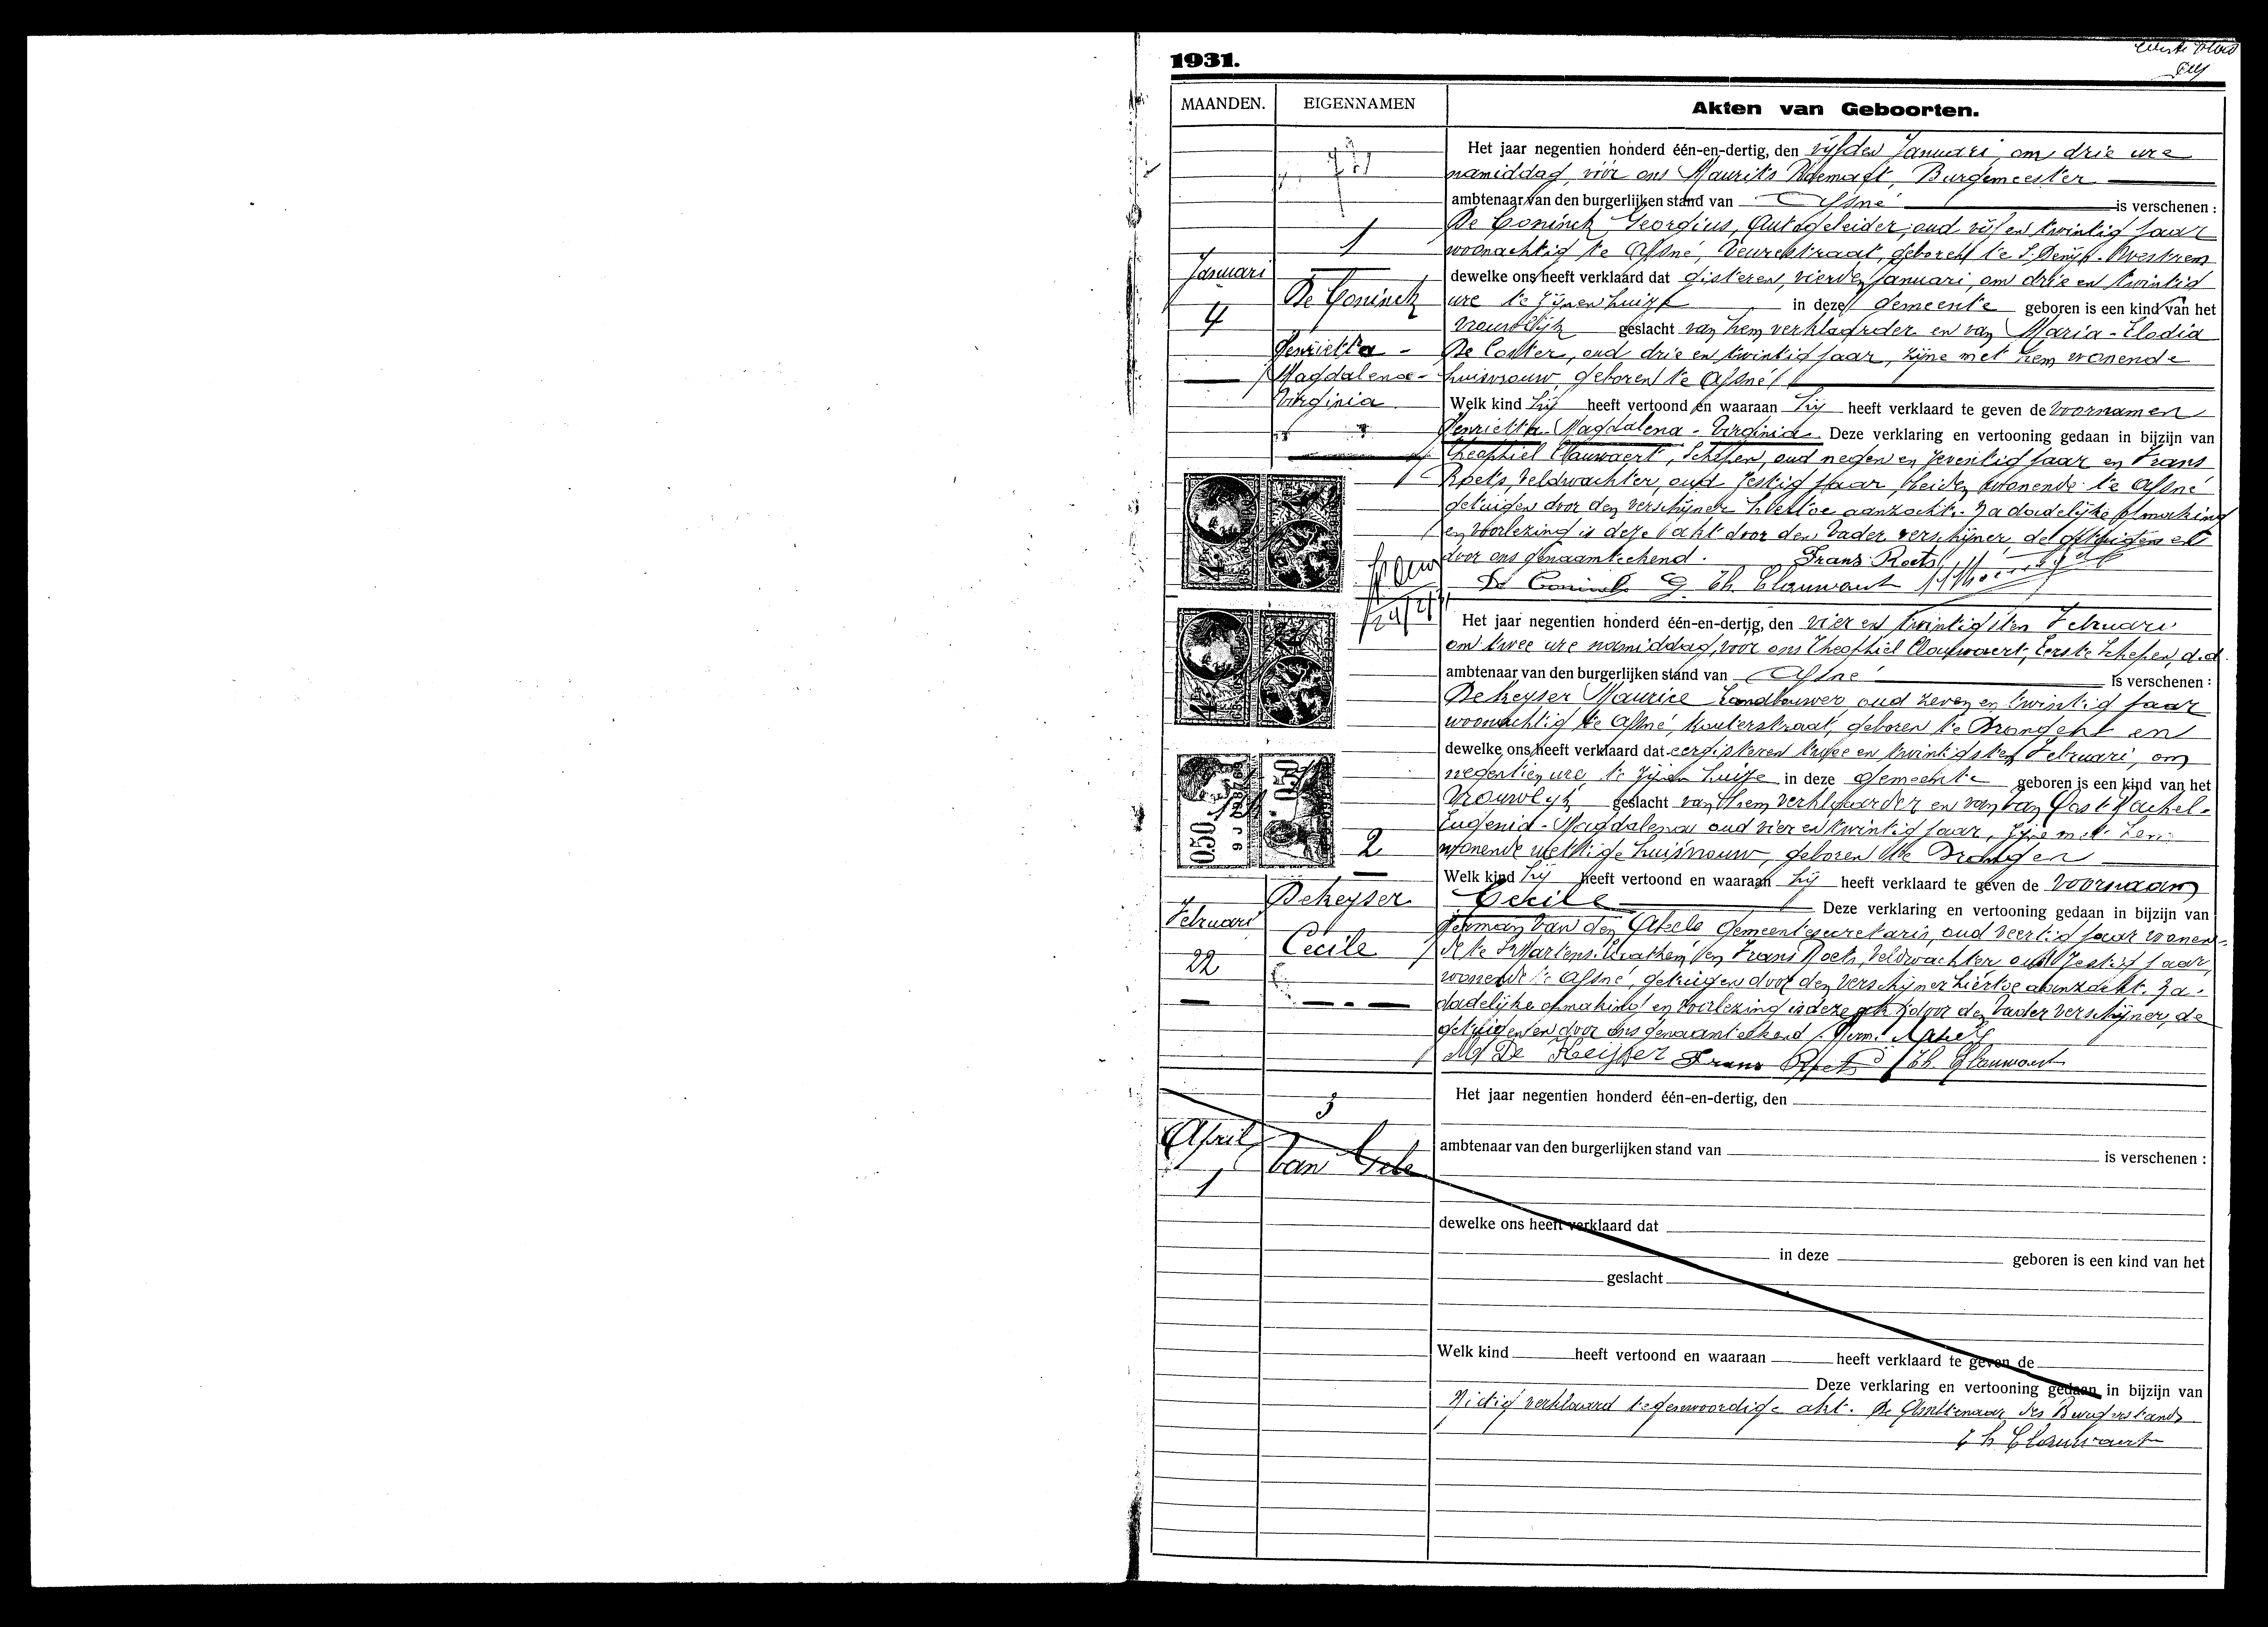 1931.
Eerste blad
MAANDEN. EIGENNAMEN Akten van Geboorten.
Het jaar negentien honderd één-en-dertig, den vijfden Januari, om drie ure
namiddag, vóór ons Maurits Burgemeester
ambtenaar van den burgerlijken stand van Afsné is verschenen :
De Coninck Georgius, Autogeleider, oud vijf en twintig jaar
woonachtig te Afsné, Veurestraat, geboren te S. Denijs-Westrem
dewelke ons heeft verklaard dat gisteren, vierden Januari, om drie en twintig
ure te zijnen huize in deze gemeente geboren is een kind van het
vrouwelijk geslacht van hem verklaarder en van Maria-Elodia
De Coster, oud drie en twintig jaar, zijne met hem wonende
huisvrouw, geboren te Afsné
Welk kind hij heeft vertoond en waaraan hij heeft verklaard te geven de voornamen
Henrietta-Magdalena-Virginia. Deze verklaring en vertooning gedaan in bijzijn van
Theophiel Clauwaert, Schepen, oud negen en zeventig jaar en Frans
Roets, Veldwachter, oud zestig jaar, beiden wonende te Afsné
getuigen door den verschijner hiertoe aanzocht. Na dadelijke opmaking
en voorlezing is deze akt door den Vader verschijner, de getuigen en
door ons genaamteekend. Frans Roets
De Coninck G. Th. Clauwaert
1
Januari
4
De Coninck
Henrietta-
Magdalena-
Virginia
24/2/31
Het jaar negentien honderd één-en-dertig, den vier en twintigsten Februari
om twee ure namiddag, vóór ons Theophiel Clauwaert, Eerste Schepen, d.d.
ambtenaar van den burgerlijken stand van Afsné is verschenen :
Dekeyser Maurice Landbouwer, oud zeven en twintig jaar
woonachtig te Afsné, Kouterstraat, geboren te Drongen en
dewelke ons heeft verklaard dat eergisteren twee en twintigsten Februari, om
negentien ure te zijnen huize in deze gemeente geboren is een kind van het
vrouwelijk geslacht van hem verklaarder en van Van Oost Rachel-
Eugenia-Magdalena oud vier en twintig jaar, zijne met hem
wonende wettige huisvrouw, geboren te Drongen
Welk kind hij heeft vertoond en waaraan hij heeft verklaard te geven de voornaam
Cecile Deze verklaring en vertooning gedaan in bijzijn van
Herman Van den Abeele Gemeentesecretaris, oud veertig jaar wonen-
de te St Martens-Leerne, en Frans Roets, Veldwachter oud zestig jaar,
wonende te Afsné, getuigen door den verschijner hiertoe aanzocht. Na
dadelijke opmaking en voorlezing is deze akt door den Vader verschijner, de
getuigen en door ons genaamteekend. Herm. Abeele
M De Keijser Frans Roets Th. Clauwaert
0.50 0.50
2
Dekeyser
Februari
Cecile
22
3
April
Van Gele
1
Het jaar negentien honderd één-en-dertig, den
ambtenaar van den burgerlijken stand van is verschenen :
dewelke ons heeft verklaard dat
in deze geboren is een kind van het
geslacht
Welk kind heeft vertoond en waaraan heeft verklaard te geven de
Deze verklaring en vertooning gedaan in bijzijn van
Nietig verklaard tegenwoordige akt. De Ambtenaar des Burgerstands
Th Clauwaert